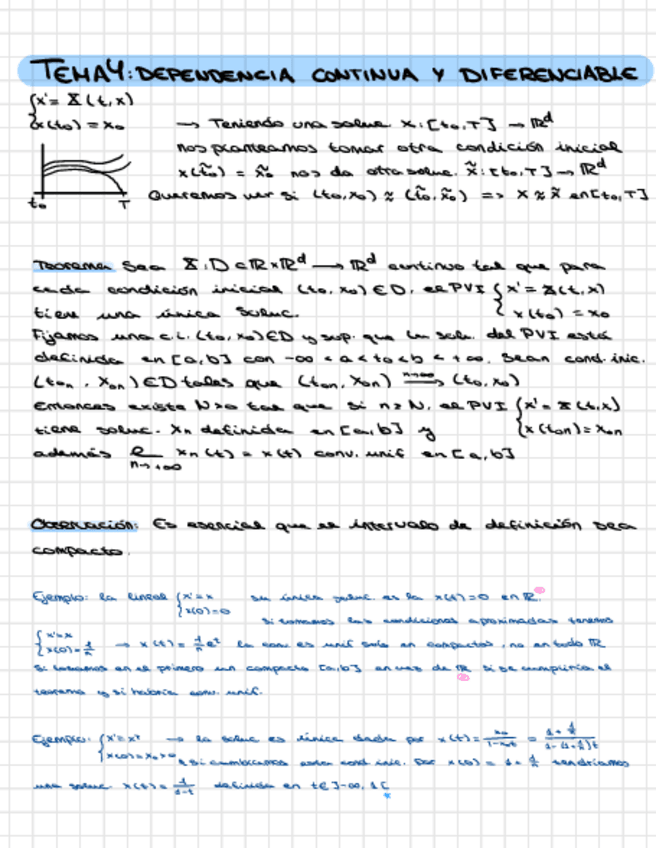 TEMA 4: DEPENDENCIA CONTINUA Y DIFERENCIABLE
{x' = X(t,x)
x(t₀) = x₀ → Teniendo una soluc. x: [t₀,T] → ℝᵈ
nos planteamos tomar otra condición inicial
x(t̃₀) = x̃₀ nos da otra soluc. x̃: [t₀,T] → ℝᵈ
Queremos ver si (t₀,x₀) ≈ (t̃₀,x̃₀) => x ≈ x̃ en [t₀,T]
t₀ T
Teorema Sea X: D⊂ℝ×ℝᵈ → ℝᵈ continuo tal que para
cada condición inicial (t₀,x₀)∈D, el PVI {x' = X(t,x)
tiene una única soluc. x(t₀) = x₀
Fijamos una c.i. (t₀,x₀)∈D y sup. que la soluc. del PVI está
definida en [a,b] con -∞ < a < t₀ < b < +∞. Sean cond. inic.
(t₀ₙ, x₀ₙ)∈D tales que (t₀ₙ, x₀ₙ) → (t₀,x₀)
Entonces existe N>0 tal que si n≥N, el PVI {x' = X(t,x)
tiene soluc. xₙ definida en [a,b] y x(t₀ₙ) = x₀ₙ
además ℓ xₙ(t) = x(t) conv. unif en [a,b]
n→+∞
Observación: Es esencial que el intervalo de definición sea
compacto.
Ejemplo: la lineal {x'=x su única soluc. es la x(t)=0 en ℝ.
x(0)=0
si tomamos las condiciones aproximadas tenemos
{x'=x
x(0)=1/n → x(t) = 1/n eᵗ la conv. es unif solo en compactos, no en todo ℝ
Si tomamos en el primero un compacto [a,b] en vez de ℝ si se cumpliría el
teorema y si habría conv. unif.
Ejemplo: {x'=x² → la soluc es única dada por x(t) = x₀/(1-x₀t) = (1+1/n)/(1-(1+1/n)t)
x(0)=x₀>0 si cambiamos esta cond inic. por x(0) = 1+1/n tendríamos
una soluc. x(t) = 1/(1-t) definida en t∈]-∞,1[